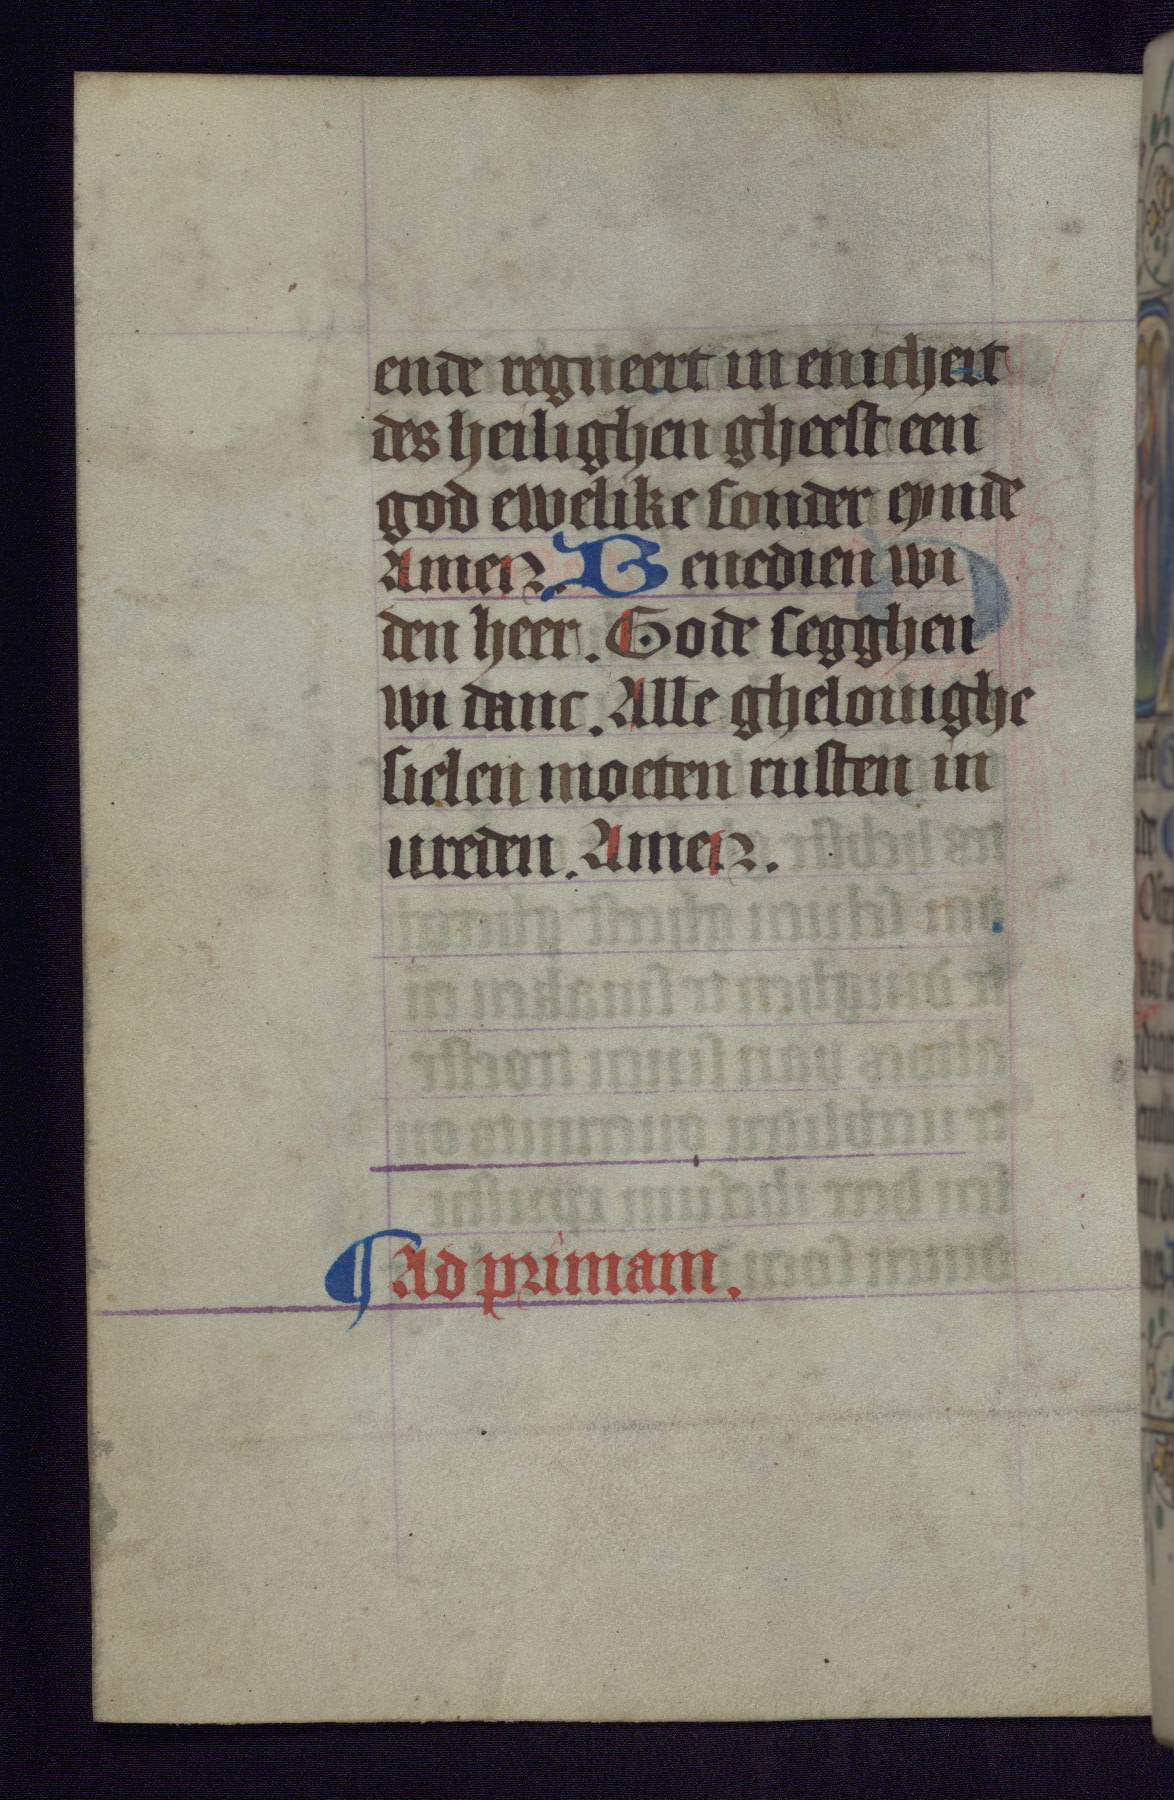 ende regneert in enicheit
des heilighen gheest een
god ewelike sonder eynde
Amen. Benedien wi
den heer. Gode segghen
wi danc. Alle ghelouighe
sielen moeten rusten in
ureden. Amen.
¶ Ad primam.